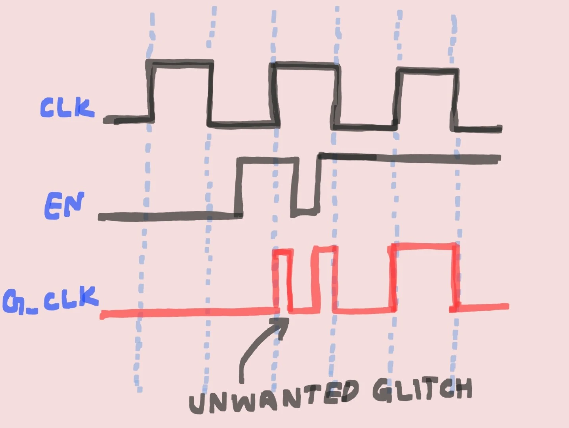 CLK
EN
G_CLK
UNWANTED GLITCH